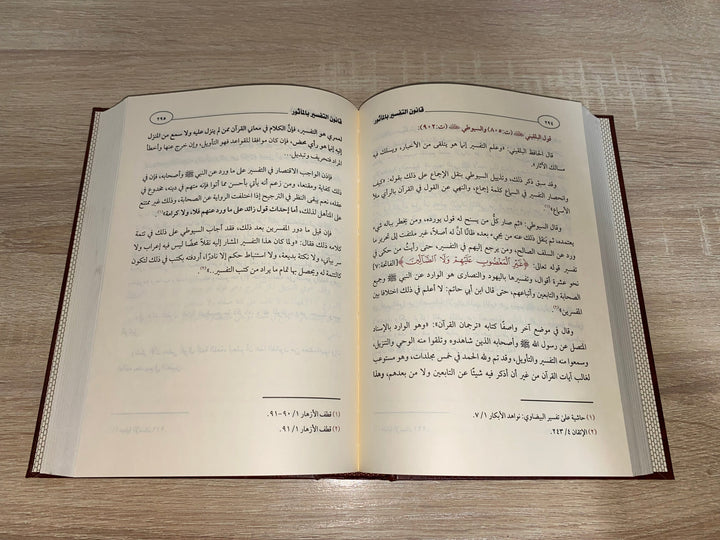 ٢٩٤
قانون التفسير بالمأثور
قول البلقيني ﵀ (ت:٨٠٥) والسيوطي ﵀ (ت:٩٠٢):
قال الحافظ البلقيني: «وعلم التفسير إنما يتلقى من الأخبار، ويسلك فيه
مسالك الآثار».
وقد سبق ذكر ذلك، وتذييل السيوطي بنقل الإجماع على ذلك بقوله: «كيف
وانحصار التفسير في السماع كلمة إجماع، والنهي عن القول في القرآن بالرأي ملأ
الأسماع»(١).
وقال السيوطي: «ثم صار كلُّ من يسنح له قول يورده، ومن يخطر بباله شيء
يعتمده، ثم ينقل ذلك عنه من يجيء بعده ظانًا أنَّ له أصلًا، غير ملتفت إلى تحرير ما
ورد عن السلف الصالح، ومن يرجع إليهم في التفسير، حتى رأيتُ من حكى في
تفسير قوله تعالى: ﴿غَيۡرِ ٱلۡمَغۡضُوبِ عَلَيۡهِمۡ وَلَا ٱلضَّآلِّينَ﴾ [الفاتحة:٧]
نحو عشرة أقوال، وتفسيرها باليهود والنصارى هو الوارد عن النبي ﷺ وجميع
الصحابة والتابعين وأتباعهم، حتى قال ابن أبي حاتم: لا أعلم في ذلك اختلافا بين
المفسرين»(٢).
وقال في موضع آخر واصفًا كتابه «ترجمان القرآن»: «وهو الوارد بالإسناد
المتصل عن رسول الله ﷺ وأصحابه الذين شاهدوه وتلقوا منه الوحي والتنزيل،
وسمعوا منه التفسير والتأويل، وقد تم ولله الحمد في خمس مجلدات، وهو مستوعب
لغالب آيات القرآن من غير أن أذكر فيه شيئًا عن التابعين ولا من بعدهم، وهذا
(١) حاشية على تفسير البيضاوي: نواهد الأبكار ١/ ٧.
(٢) الإتقان ٤/ ٢٤٣.
قانون التفسير بالمأثور
٢٩٥
لعمري هو التفسير، فإنَّ الكلام في معاني القرآن ممن لم ينزل عليه ولا سمع من المنزل
إليه إنما هو رأي محض، فإن كان موافقا للقواعد فهو التأويل، وإن خرج عنها وأخطأ
المراد فتحريف وتبديل(١).
فإذن الواجب الاقتصار في التفسير على ما ورد عن النبي ﷺ وأصحابه، فإن في
ذلك كفاية ومقنعا، ومن زعم أنه يأتي بأحسن مما أتوا فإنه متهم في دينه، مخدوع في
عقله، نعم يبقى النظر في الترجيح إذا اختلفت الرواية عن الصحابة، وذلك غير ممتنع
على المتأهل لذلك، أما إحداث قول زائد على ما ورد عنهم فلا، ولا كرامة»(٢).
فإن قيل ما دور المفسرين بعد ذلك، فقد أجاب السيوطي على ذلك في تتمة
كلامه ذلك فقال: «ولما كان هذا التفسير المشار إليه نقلًا محضًا ليس فيه إعراب ولا
سر بياني، ولا نكتة بديعة، ولا استنباط حكم إلا نادرًا، أردفته بكتب في ذلك لتكون
كالتتمة له ويحصل بها تمام ما يراد من كتب التفسير..»
(١) قطف الأزهار ١/ ٩٠-٩١.
(٢) قطف الأزهار ١/ ٩١.